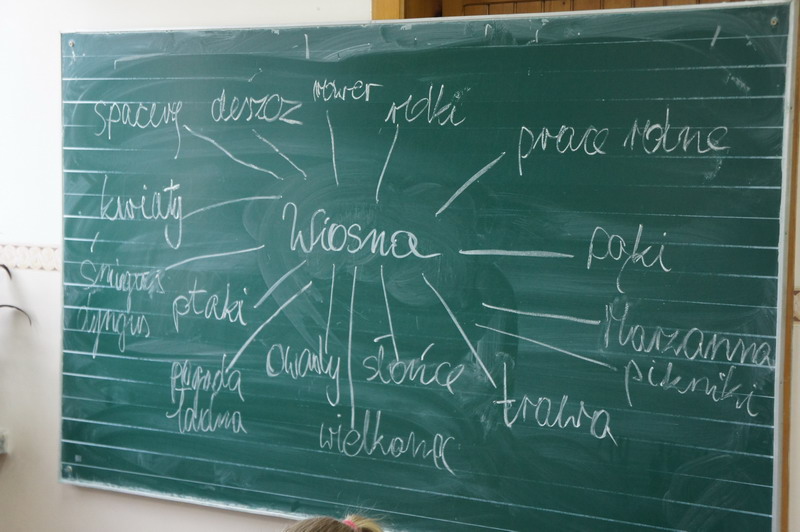 spacery deszcz rower rolki
prace rolne
kwiaty
Wiosna
pąki
śmigus
dyngus
ptaki
Marzanna
pikniki
pogoda
ładna
owady słońce
trawa
wielkanoc